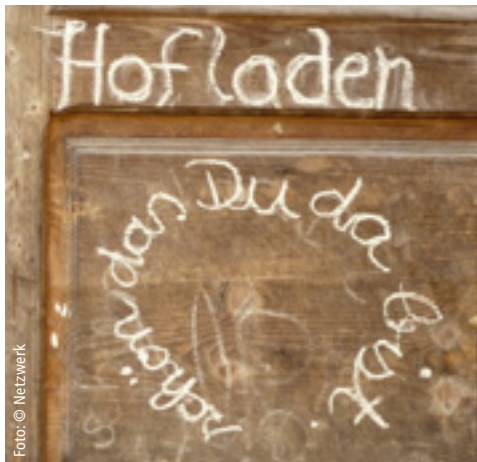 Hofladen
schön das Du da bist
Foto: © Netzwerk